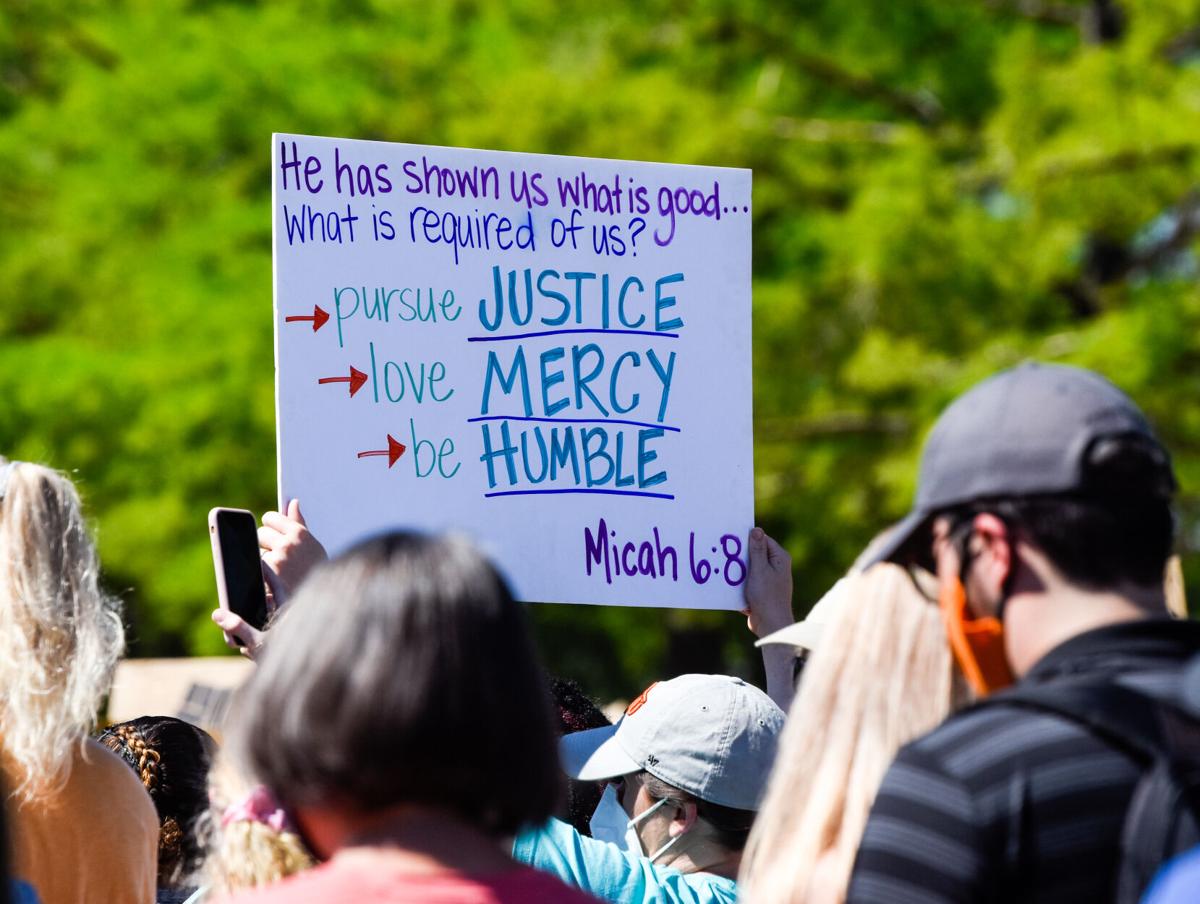 He has shown us what is good...
What is required of us?
→ pursue JUSTICE
→ love MERCY
→ be HUMBLE
Micah 6:8
'47